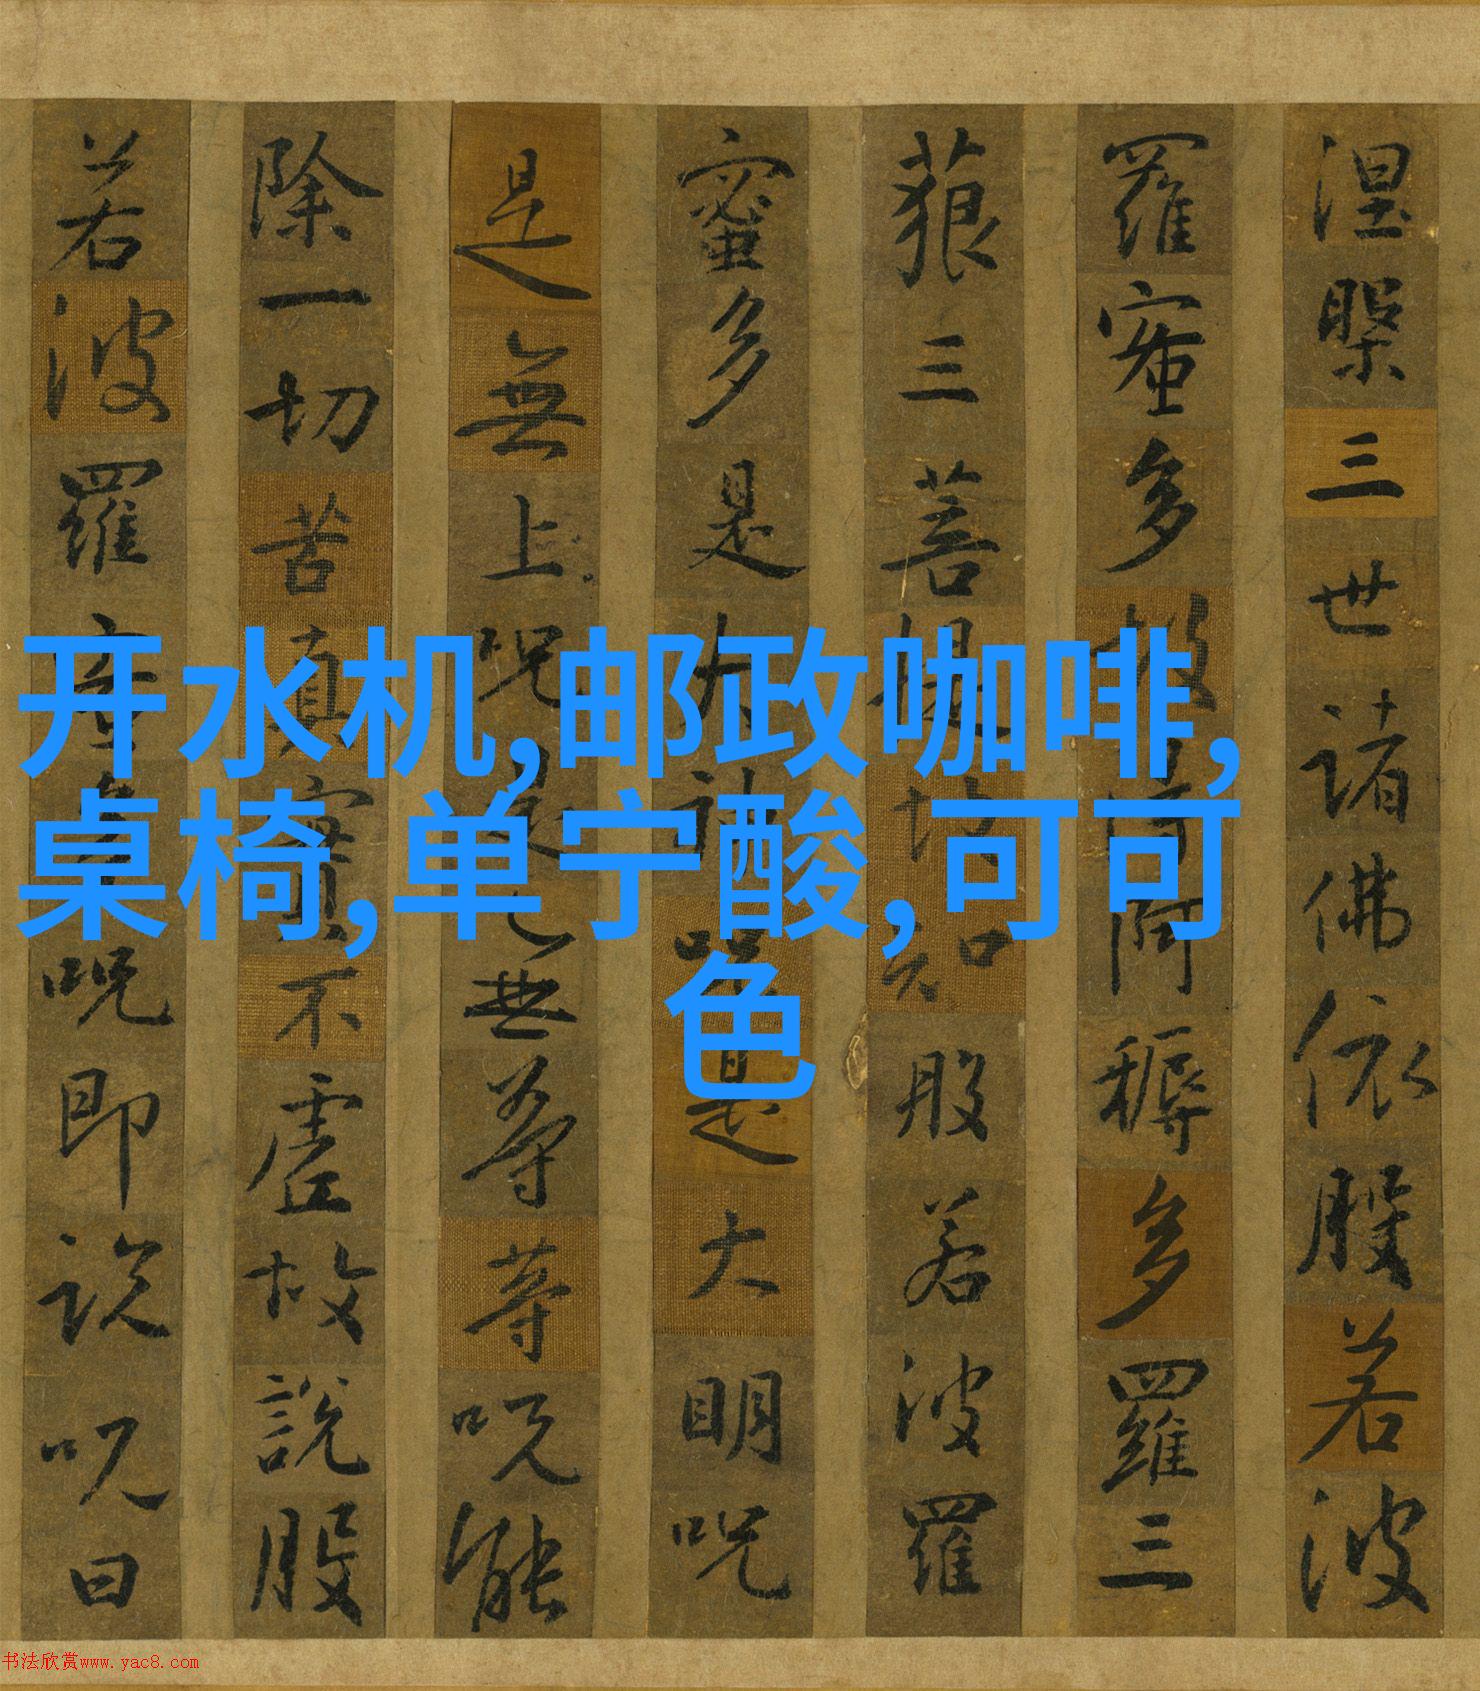 涅槃三世諸佛依般若波
羅蜜多故得阿耨多羅三
藐三菩提故知般若波羅
蜜多是大神咒是大明咒
是無上呪是無等等呪能
除一切苦真實不虛故說般
若波羅蜜多呪即說呪曰
开水机,邮政咖啡,
桌椅,单宁酸,可可
色
书法欣赏www.yac8.com